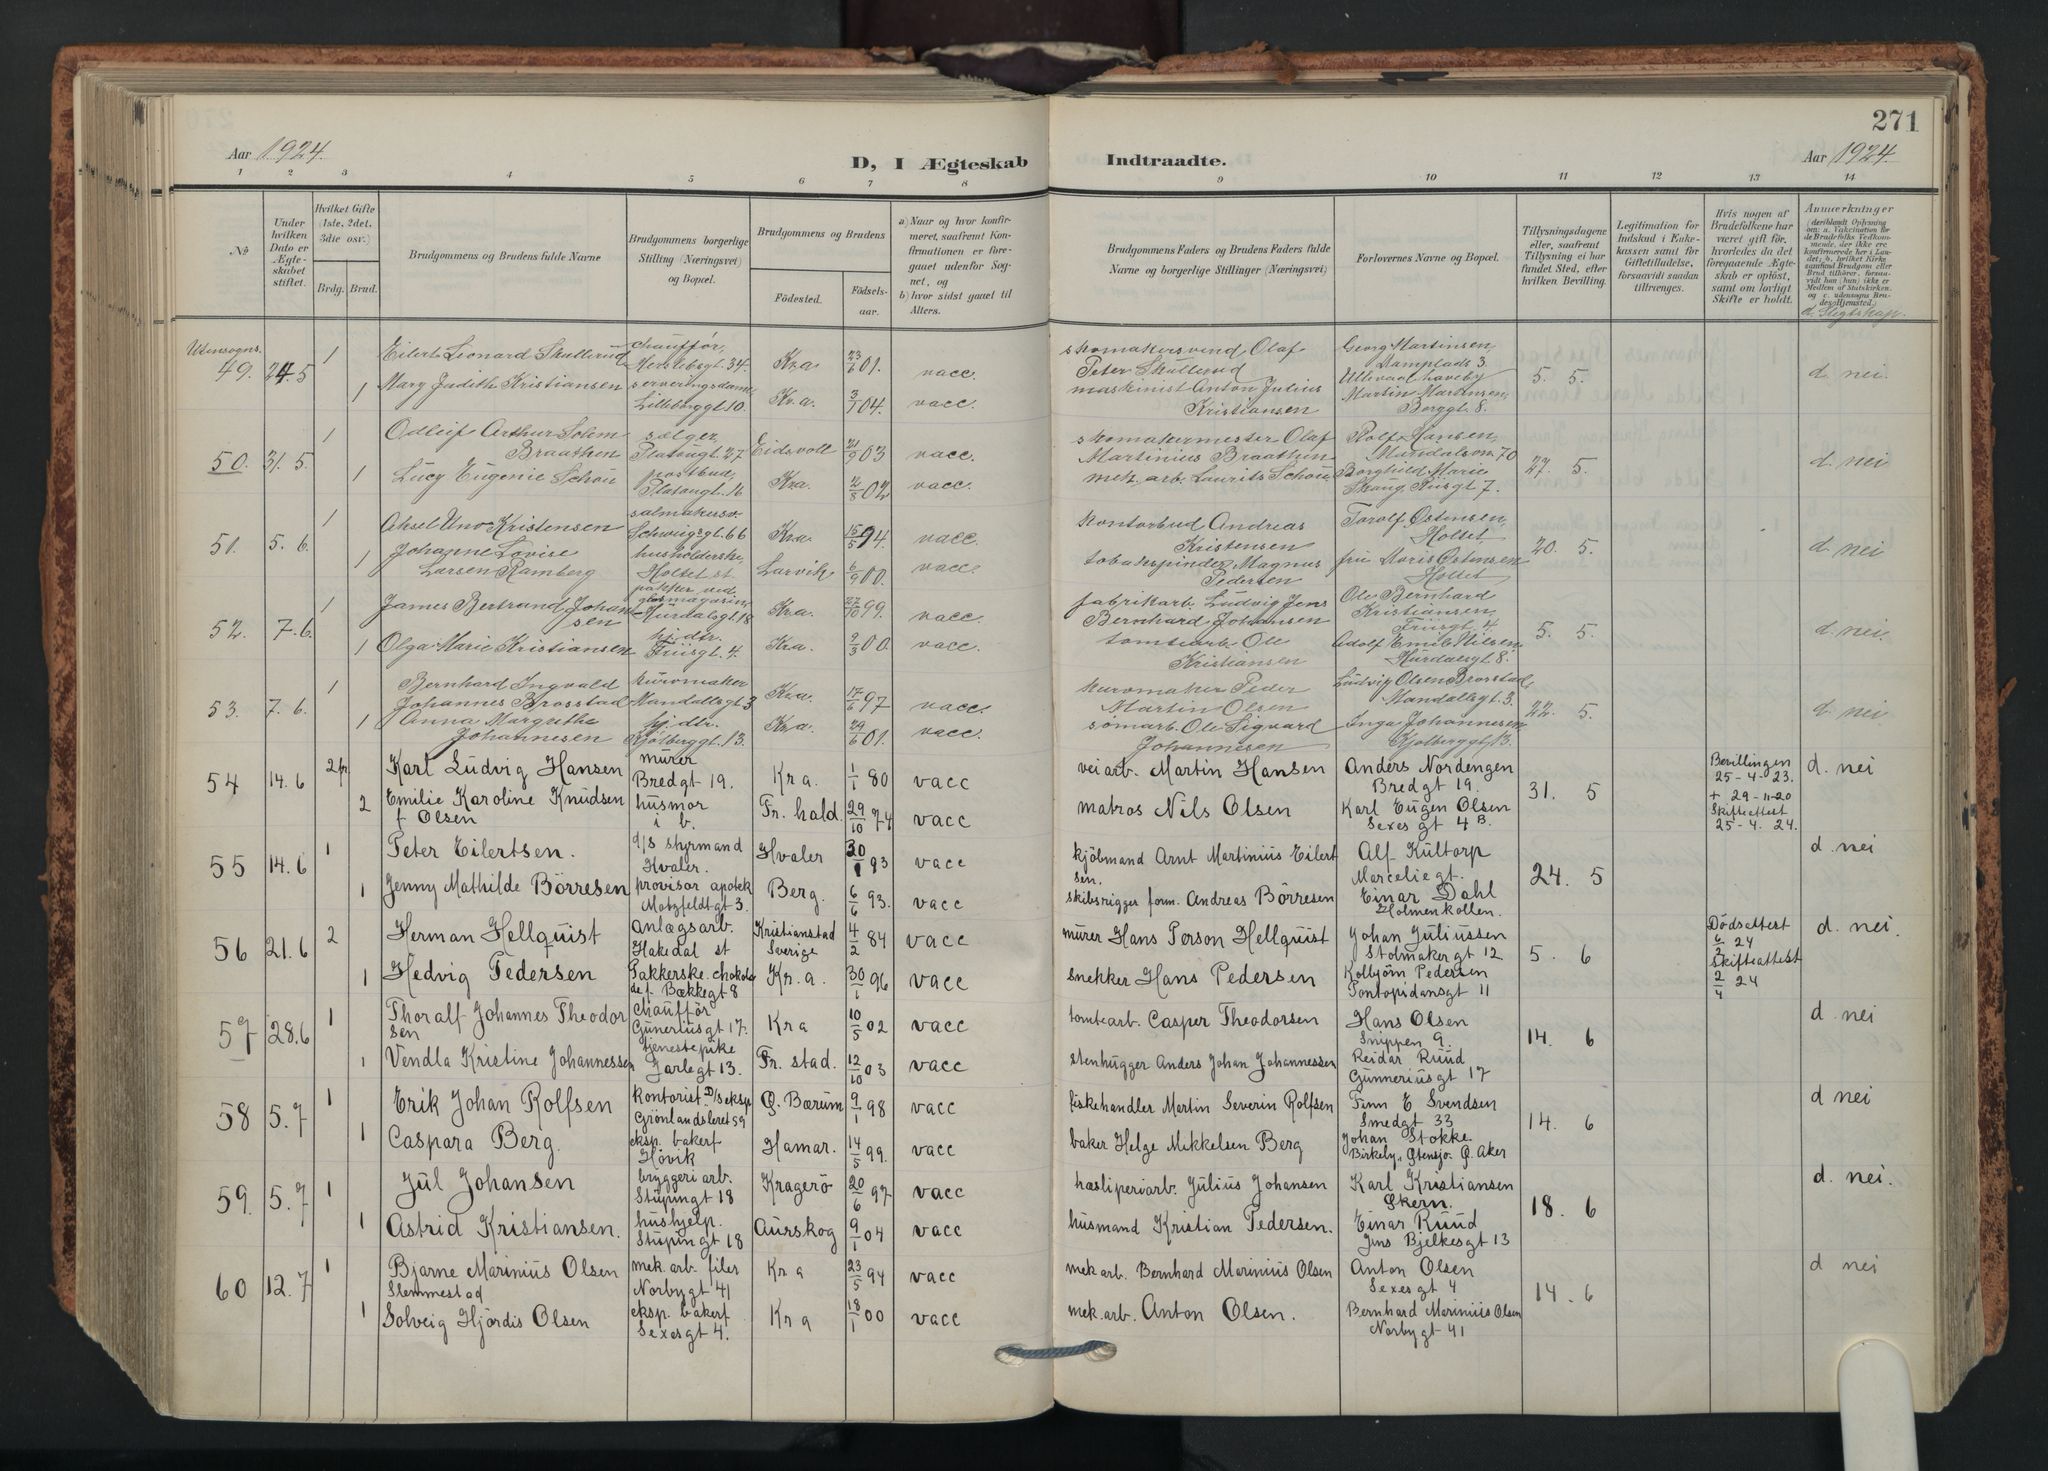 271
Aar 1924.
D, I Ægteskab Indtraadte.
Aar 1924.
1 2 3 4 5 6 7 8 9 10 11 12 13 14
№
Under hvilken Dato er Ægteskabet stiftet.
Hvilket Gifte (1ste, 2det, 3die osv.)
Brdg. Brud.
Brudgommens og Brudens fulde Navne
Brudgommens borgerlige Stilling (Næringsvei) og Bopæl.
Brudgommens og Brudens
Födested. Födsels-aar.
a) Naar og hvor konfirmeret, saafremt Konfirmationen er foregaaet udenfor Sognet, og
b) hvor sidst gaaet til Alters.
Brudgommens Faders og Brudens Faders fulde Navne og borgerlige Stillinger (Næringsvei)
Forlovernes Navne og Bopæl.
Tillysningsdagene eller, saafremt Tillysning ei har fundet Sted, efter hvilken Bevilling.
Legitimation for Indskud i Enkekassen samt for Giftetilladelse, forsaavidt saadan tiltrænges.
Hvis nogen af Brudefolkene har været gift før, hvorledes da det foregaaende Ægteskab er opløst, samt om lovligt Skifte er holdt.
Anmerkninger
d. Slegtskap.
Utensogns.
49. 24.5 1 Eilert Leonard Skullerud chauffør, Herslebsgt. 34. Kra 23/6 01. vacc. skomakersvend Olaf Peter Skullerud Georg Martinsen, Damplads 3 Ullevaal haveby 5. 5. d. nei.
1 Mary Judithe Kristiansen serveringsdame, Lilleborggt. 10. Kr.a. 3/1 04. vacc. maskinist Anton Julius Kristiansen Martin Martinsen, Berggt. 8.
50. 31. 5. 1 Odleif Arthur Solem Braathen sælger, Platougt. 27 Eidsvoll 21/9 03 vacc. skomakermester Olaf Martinius Braathen Rolf Hansen, 70 27. 5. d. nei
1 Lucy Eugenie Schou postbud, Platougt. 16 Kra. 2/8 02 vacc. mek. arb. Laurits Schou, Borghild Marie Skaug, Riisgt 7.
51. 5. 6. 1 Aksel Uno Kristensen salmakersv. Schweigsgt 66 Kra. 15/5 94. vacc. kontorbud Andreas Kristensen Torolf Østensen, Holset, 20. 5. d. nei
1 Johanne Lovise Larsen Ramberg husholderske, Holset st. Larvik 6/9 00. vacc. tobakspinder Magnus Pedersen fru Moris Østensen Holset
52. 7. 6. 1 James Bertrand Johansen pakker ved glasmagasin, Hurdalsgt. 18 Kra. 27/10 99. vacc. fabrikarb. Ludvig Jens Bernhard Johansen Ole Bernhard Kristiansen, Friisgt. 4. 5. 5. d. nei.
1 Olga Marie Kristiansen hj. dtr. Friisgt. 4. Kra 9/3 00. vacc. tomtearb. Ole Kristiansen Adolf Emil Nilsen, Hurdalsgt 8.
53. 7. 6. 1 Bernhard Ingvald Johannes Brosstad kurvmaker Mandallsgt 3 Kra. 17/6 97 vacc. kurvmaker Peder Martin Olsen Ludvig Olsen Brosstad, Mandalsgt. 3. 22. 5. d. nei
1 Anna Margrethe Johannesen hj. dtr. Kjølberggt. 13. Kra. 29/6 01. vacc. sømarb. Ole Sigvard Johannesen Inga Johannesen, Kjølberggt 13.
54 14. 6 2 fr. Karl Ludvig Hansen murer Bredgt 19. Kra. 1/1 80 vacc veiarb. Martin Hansen Anders Nordengen Bredgt 19. 31. 5 Bevillingen 25-4-23. d. nei
2 Emilie Karoline Knudsen f. Olsen husmor i b. Fr. hald. 29/10 74 vacc matros Nils Olsen Karl Eugen Olsen Sexes gt 4 B. + 29-11-20 Skifteattest 25-4. 24.
55 14.6 1 Peter Eilertsen. d/s styrmand Hvaler. Hvaler 30/1 93 vacc kjöbmand Arnt Martinius Eilertsen. Alf Kultorp Marceliegt. 24. 5 d. nei
1 Jenny Mathilde Börresen provisor apotek Motzfeldtgt 3. Berg. 6/6 93. vacc skibsrigger form. Andreas Börresen Einar Dahl Holmenkollen.
56 21.6 2 Herman Hellquist Anlægsarb. Hakedal st Kristianstad Sverige 4/2 84 vacc murer Hans Person Hellquist Johan Juliussen Stolmakergt 12 5. 6 Dødsattest 6/2 24 Skifteattest 2/4 24 d. nei.
1 Hedvig Pedersen Pakkerske. chokolade f. Bækkegt 8 Kr. a. 30/1 96 vacc snekker Hans Pedersen Kolbjörn Pedersen Pontopidansgt 11
57 28.6 1 Thoralf Johannes Theodorsen chauffør Guneriusgt 17. Kra 10/5 02 vacc tomtearb. Casper Theodorsen Hans Olsen Snippen 9. 14. 6 d. nei
1 Vendla Kristine Johannessen tjenestepike Jarlegt 13. Fr. stad. 12/10 03 vacc stenhugger Anders Johan Johannessen Reidar Ruud Gunneriusgt 17
58 5.7 1 Erik Johan Rolfsen kontorist D/S eksp Grönlandsleret 59 Ö. Bærum 9/1 98 vacc fiskehandler Martin Severin Rolfsen Finn E Svendsen Smedgt 33 14. 6 d nei
1 Caspara Berg. eksp. bakerf Hövik Hamar. 14/5 99. vacc baker Helge Mikkelsen Berg Johan Stokke. Birkely, Östensjö. Ö. Aker
59. 5.7 1 Jul Johansen bryggeriarb. Stupingt 18 Kragerö 20/6 97 vacc hösliperiarb. Julius Johansen Karl Kristiansen Skern. 18. 6 d. nei.
1 Astrid Kristiansen. hushjelp. Stupingt 18 Aurskog 9/1 04 vacc husmand Kristian Pedersen. Einar Ruud Jens Bjelkesgt 13
60 12.7 1 Bjarne Marinius Olsen Slemmestad mek. arb. filer Norbygt 41 Kra 23/5 94 vacc mek arb. Bernhard Marinius Olsen Anton Olsen Sexesgt 4 14. 6 d nei
1 Solveig Hjördis Olsen eksp. bakerf Sexesgt 4. Kra 18/1 00 vacc mek. arb. Anton Olsen. Bernhard Marinius Olsen Norbygt 41